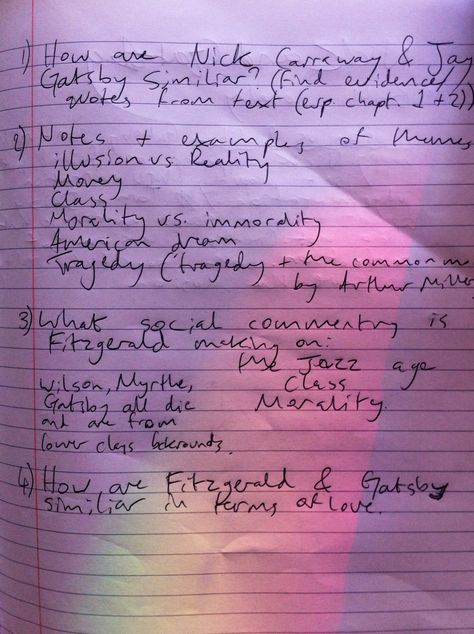 1) How are Nick Carraway & Jay
Gatsby Similiar? (find evidence/
quotes from text (esp. chapt. 1 + 2)
2) Notes + examples of themes
illusion vs Reality
Money
Class
Morality vs. immorality
American dream
Tragedy ('tragedy + the common m
by Arthur Miller
3) What social commentry is
Fitzgerald making on:
the Jazz age
Wilson, Myrtle, Class
Gatsby all die Morality.
and are from
lower class backrounds.
4) How are Fitzgerald & Gatsby
similiar in terms of love.